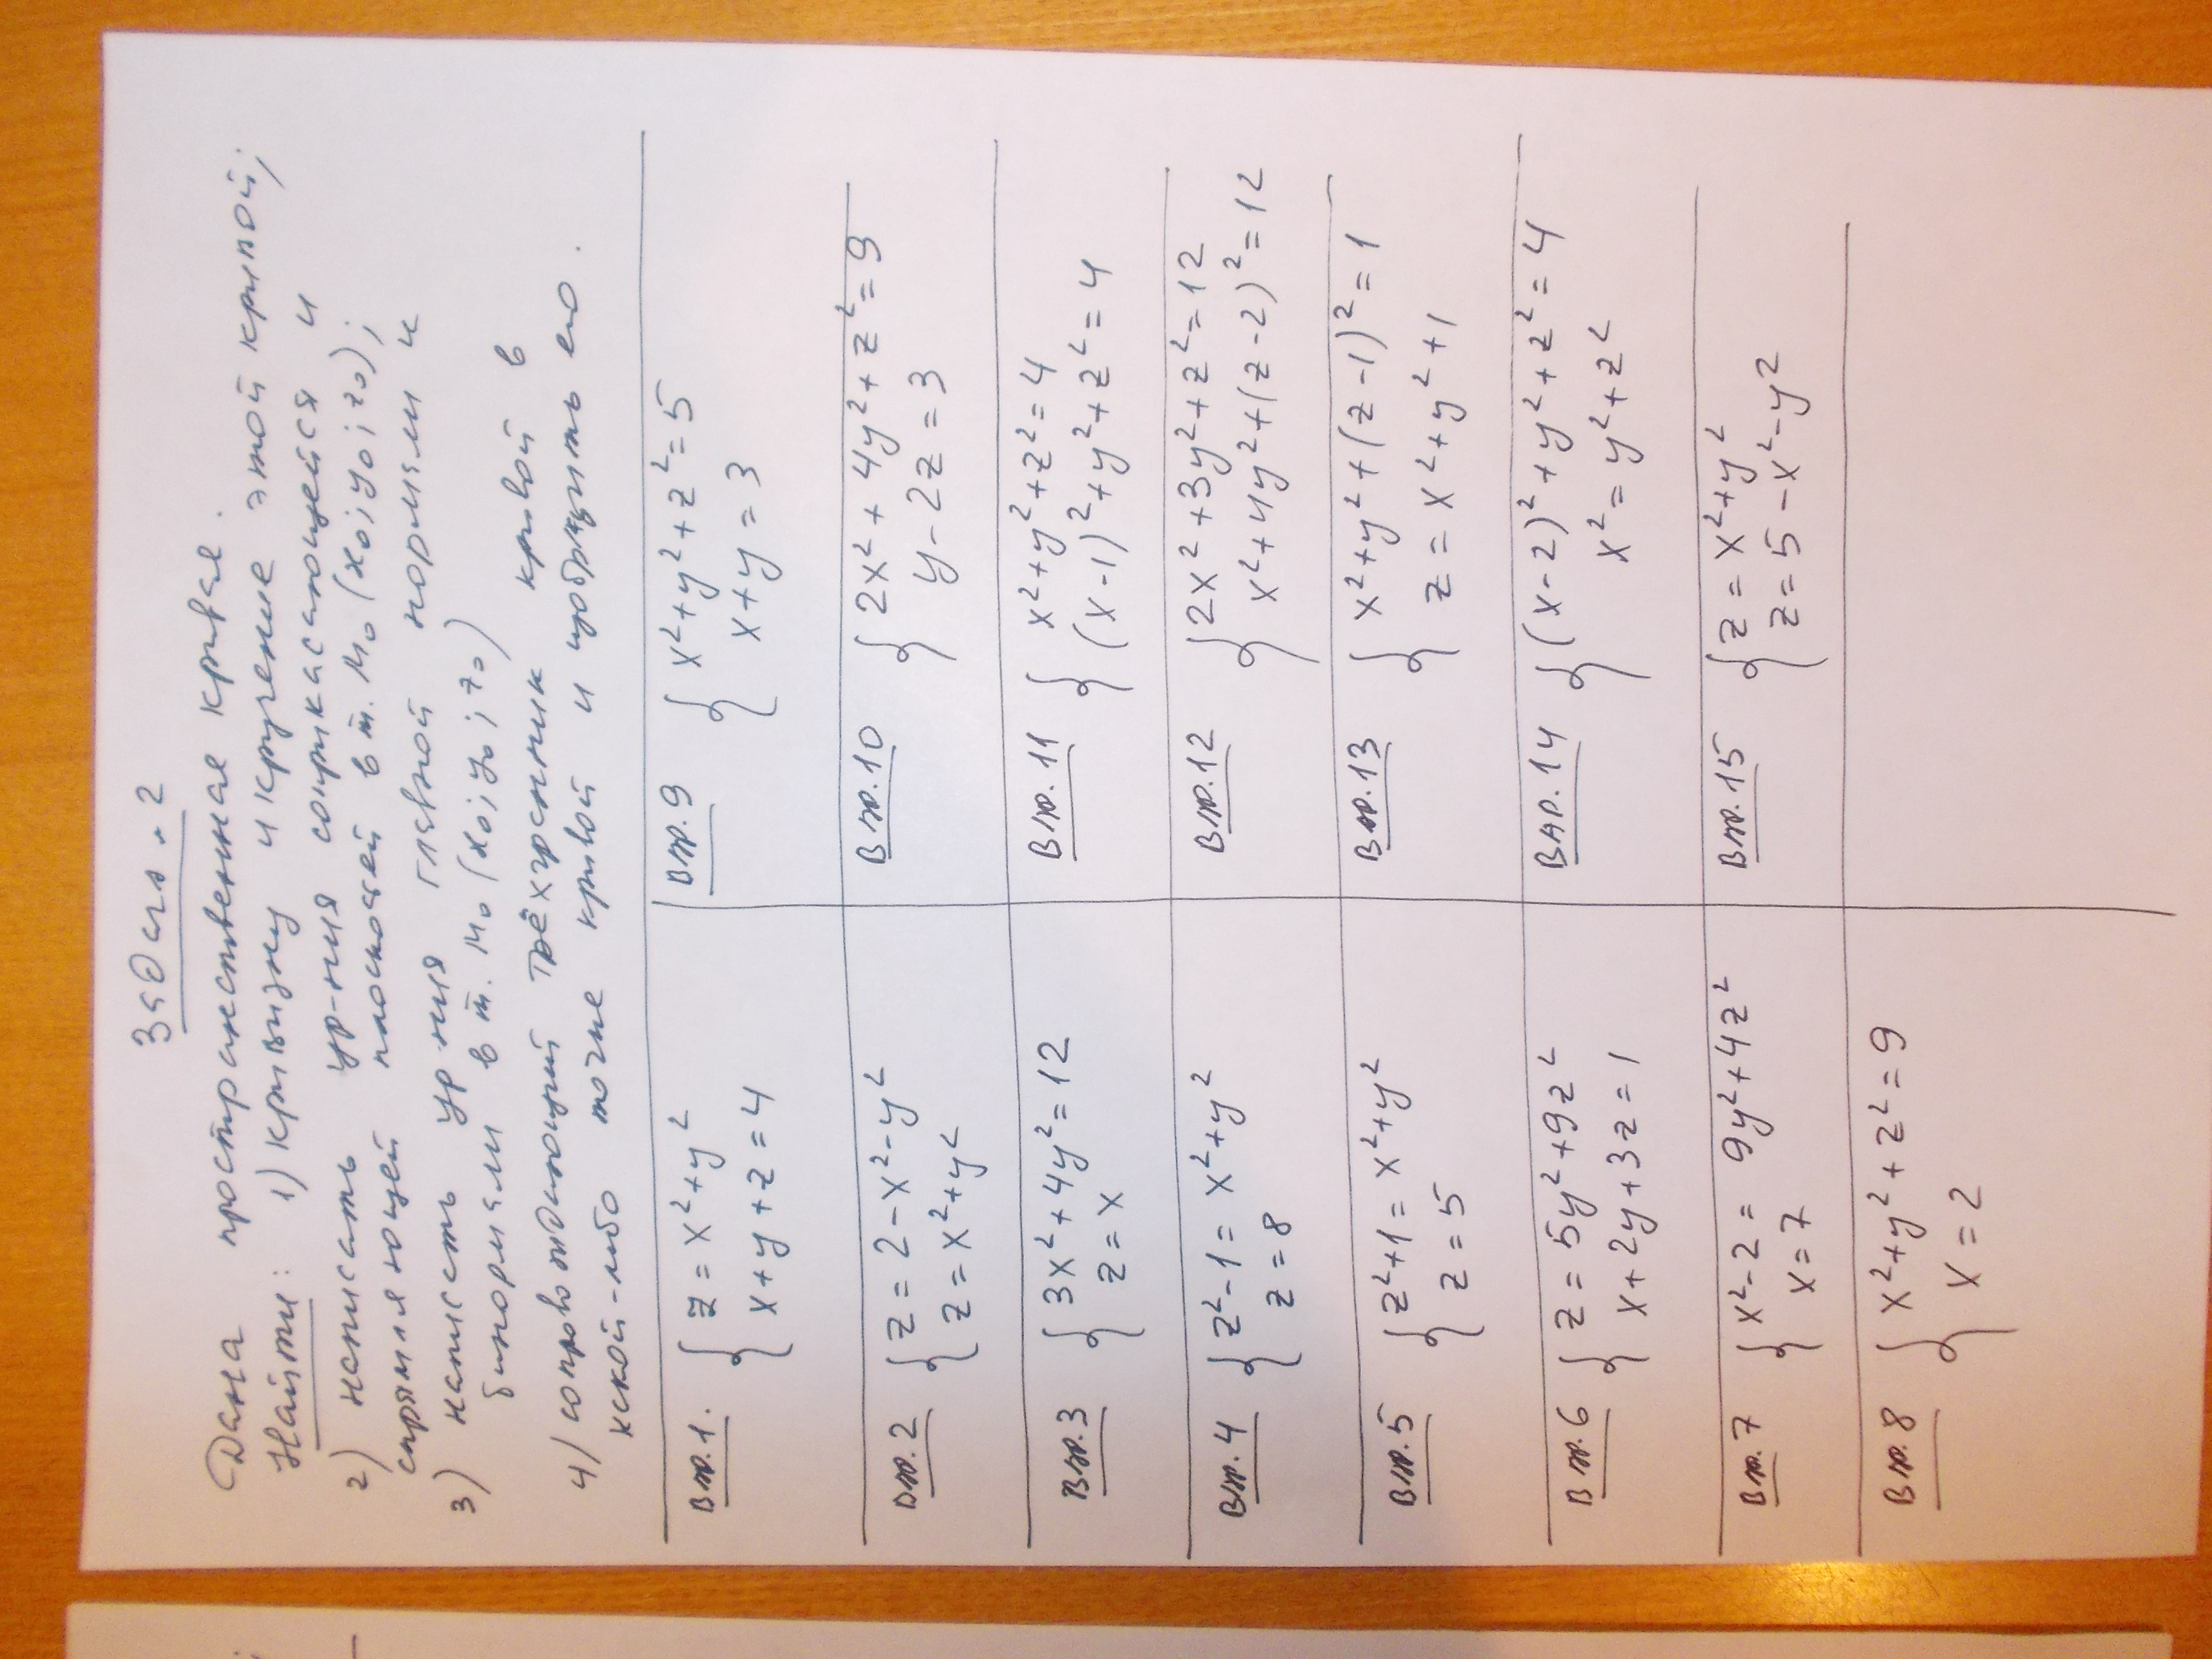 Задача 2
Дана пространственная кривая.
Найти: 1) кривизну и кручение этой кривой;
2) написать ур-ния соприкасающейся и
спрямляющей плоскостей в т. M₀(x₀; y₀; z₀);
3) написать ур-ния главной нормали и
бинормали в т. M₀(x₀; y₀; z₀)
4) сопровождающий трёхгранник кривой в
какой-либо точке кривой и изобразить его.
Вар. 1. { z = x² + y²
x + y + z = 4
Вар. 2 { z = 2 - x² - y²
z = x² + y²
Вар. 3 { 3x² + 4y² = 12
z = x
Вар. 4 { z² - 1 = x² + y²
z = 8
Вар. 5 { z² + 1 = x² + y²
z = 5
Вар. 6 { z = 5y² + 9z²
x + 2y + 3z = 1
Вар. 7 { x² - 2 = 9y² + 4z²
x = 7
Вар. 8 { x² + y² + z² = 9
x = 2
Вар. 9 { x² + y² + z² = 5
x + y = 3
Вар. 10 { 2x² + 4y² + z² = 9
y - 2z = 3
Вар. 11 { x² + y² + z² = 4
(x - 1)² + y² + z² = 4
Вар. 12 { 2x² + 3y² + z² = 12
x² + 4y² + (z - 2)² = 12
Вар. 13 { x² + y² + (z - 1)² = 1
z = x² + y² + 1
Вар. 14 { (x - 2)² + y² + z² = 4
x² = y² + z²
Вар. 15 { z = x² + y²
z = 5 - x² - y²